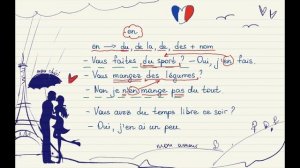 en
en → du, de la, de, des + nom
- Vous faites du sport ? - Oui, j'en fais.
- Vous mangez des légumes ?
- Non je n'en mange pas du tout
- Vous avez du temps libre ce soir ?
- Oui, j'en ai un peu.
mon amour